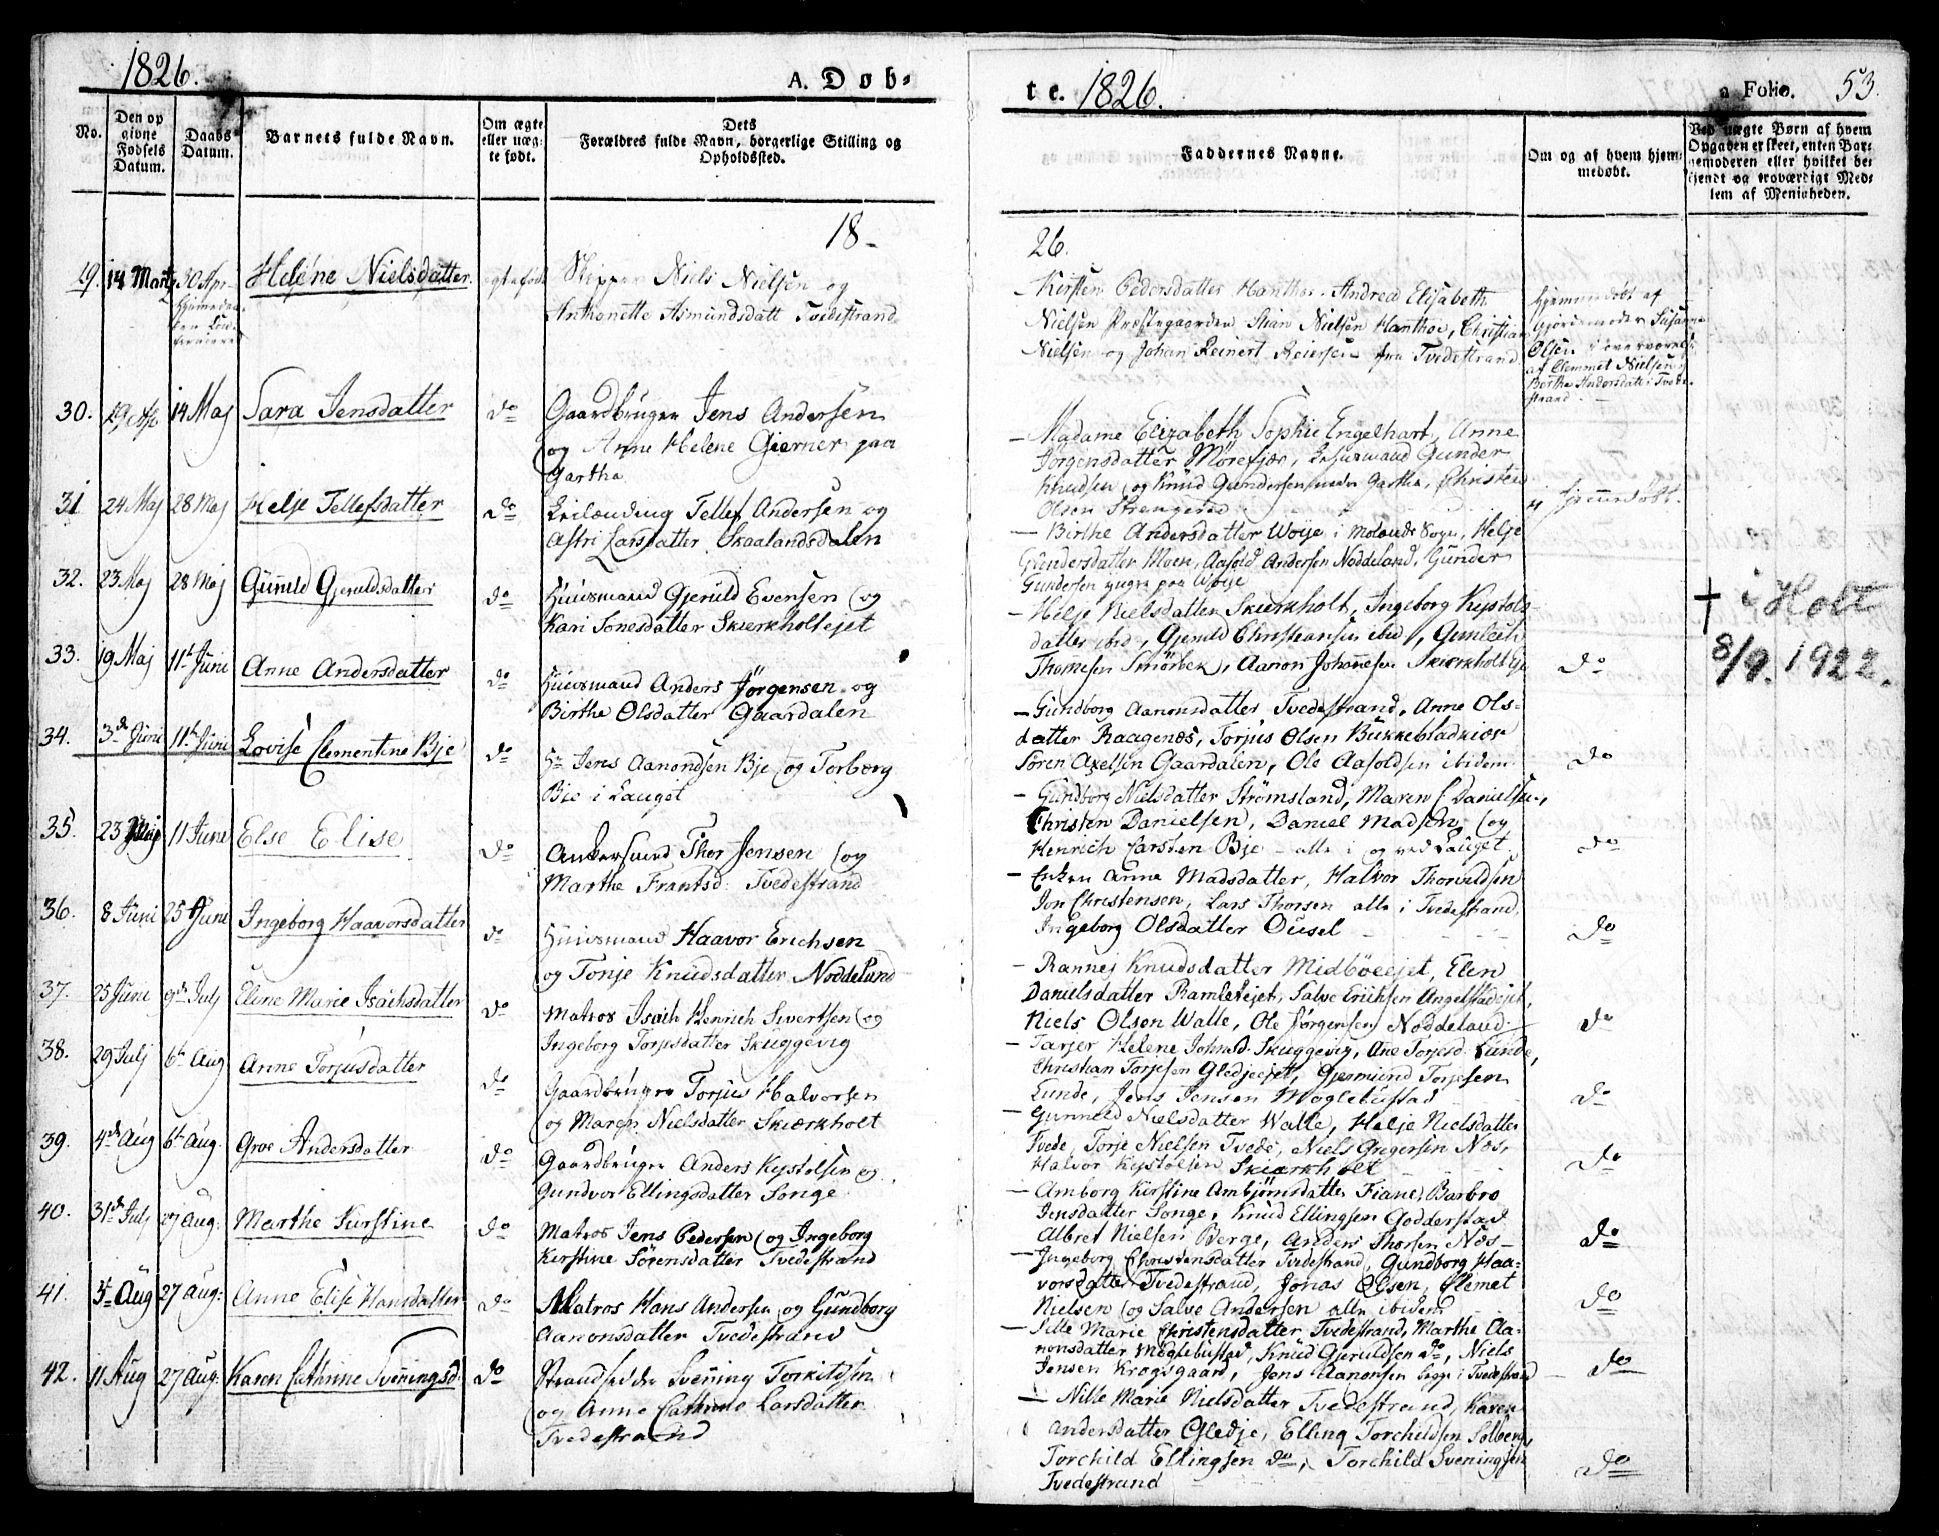 1826.
A. Døb-
No.
Den op
givne
Fødsels
Datum.
Daabs
Datum.
Barnets fulde Navn.
Om ægte
eller uæg-
te født.
Dets
Forældres fulde Navn, borgerlige Stilling og
Opholdssted.
18-
29. 14 Martz 30 Apr. Heléne Nielsdatter. Skipper Niels Nielsen og
Anthonette Asmundsdatt Tvedestrand
30. 29 Ap 14 Maj Sara Jensdatter do Gaardbruger Jens Andersen
og Anne Helene Gierner paa
Gartha
31 24 Maj 28 Maj Helje Tellefsdatter do Leilænding Tellef Andersen og
Astri Larsdatter Skaalandsdalen
32. 23 Maj 28 Maj Gunild Gjeruldsdatter do Huusmand Gjeruld Evensen og
Kari Tonesdatter Skierkholtejet
33. 19 Maj 11t Juni Anne Andersdatter do Huusmand Anders Jörgensen og
Birthe Olsdatter Gaardalen
34. 3de Juni 11te Juni Lovise Clementine Bje do Hr Jens Aanondsen Bje og Torborg
Bie i Lauget
35. 23 Maj 11 June Else Elise do Thor Jensen og
Marthe Frantsd: Tvedestrand
36. 8 Juni 25 Juni Ingeborg Haavorsdatter do Huusmand Haavor Erichsen
og Tonje Knudsdatter Noddelund
37. 25 Juni 9de Julj Eline Marie Isachsdatter do Matros Isach Henrich Sivertsen og
Ingeborg Torjusdatter Skuggevig
38. 29 Julj 6te Aug Anne Torjusdatter do Gaardbruger Torjus Halvorsen
og Maren Nielsdatter Skierkholt
39. 4de Aug 6te Aug. Groe Andersdatter do Gaardbruger Anders Kystolsen og
Gundvor Ellingsdatter Songe
40. 31de Julj 27 Aug: Marthe Kirstine do Matros Jens Pedersen og Ingeborg
Kirstine Sörensdatter Tvedestrand
41. 5t Aug 27 Aug: Anne Elise Hansdatter do Matros Hans Andersen og Gundborg
Aanonsdatter Tvedestrand
42. 11 Aug 27 Aug: Karen Cathrine Sveningsd. do Strandsidder Svening Torkildsen
og Anne Cathrine Larsdatter
Tvedestrand
te. 1826.
a Folio. 53.
Faddernes Navne.
Om og af hvem hjem-
medøbt.
Ved uægte Børn af hvem
Opgaven er skeet, enten Bar-
nemoderen eller hvilket be-
kjendt og troværdigt Med-
lem af Menigheden.
26.
Kirsten Pedersdatter Hanthoe. Andrea Elisabeth
Nielsen Præstegaarden, Stian Nielsen Hanthoe, Christian
Nielsen og Johan Reinert Reiersen fra Tvedestrand
hjemmedøbt af
Gjordemoder Susanne
Olsen i overværelse
af Clemmet Nielsen
Berthe Andersdatt: Tvede-
strand
- Madame Elizabeth Sophie Engelhart, Anne
Jørgensdatter Mörefjær, Gunder
Knudsen og Knud Gundersen Gartha, Christen
Olsen Strengereid
hjemmedøbt.
- Birthe Andersdatter Woie i Molands Sogn, Helje
Gundersdatter Moen, Aasold Andersen Noddeland, Gunder
Gundersen yngre paa Woie
- Helje Nielsdatter Skierkholt, Ingeborg Kystols-
datter ibid, Gjeruld Christiansen ibid, Gunlech
Thomesen Smörbek, Aanon Johannesen Skierkholt do
† i Holt
8/9. 1922.
- Gundborg Aanonsdatter Tvedestrand, Anne Ols-
datter Raagenæs, Torjus Olsen
Sören Axelsen Gaardalen, Ole Aasoldsen ibidem do
- Gundborg Nielsdatter Strömsland, Maren C Danielsen,
Christen Danielsen, Daniel Madsen og
Henrich Carsten Bje - alle i og ved Lauget. do
- Enken Anne Madsdatter, Halvor Thorvildsen
Jon Christensen, Lars Thorsen alle i Tvedestrand,
Ingeborg Olsdatter Ousel do
- Rannej Knudsdatter Midböeejet, Elen
Danielsdatter Ramlet ejet, Salve Erichsen Angelstadejet,
Niels Olsen Walle, Ole Jörgensen Noddeland. do
- Tarjer Helene Johnsd. Skuggevig, Ane Torjesd. Lunde,
Christian Torjesen Gledjeejet, Gjermund Torjesen
Lunde, Jens Jensen Möglebustad do
- Gunneld Nielsdatter Walle, Helje Nielsdatter
Tvede, Torje Nielsen Tvede, Niels Gregersen Næs,
Halvor Kystolsen Skierkholt do
- Amborg Kirstine Ambjörnsdatter Fiane, Barbro
Jensdatter Songe, Knud Ellingsen Godderstad
Albret Nielsen Berge, Anders Thorsen Næs- do
- Ingeborg Christensdatter Tvedestrand, Gundborg Haa-
vorsdatter Tvedestrand, Jonas Olsen, Clemet
Nielsen og Salve Andersen alle ibidem do
- Sille Marie Christensdatter Tvedestrand, Marthe Aa-
nonsdatter Möglebustad, Knud Gjeruldsen do, Niels
Jensen Krogsgaard, Jens Aanonsen begge i Tvedestrand do
- Nille Marie Nielsdatter Tvedestrand, Karen
Andersdatter Gledje, Elling Torchildsen Solberg,
Torchild Ellingsen do, Torchild Sveningsen do
Tvedestrand